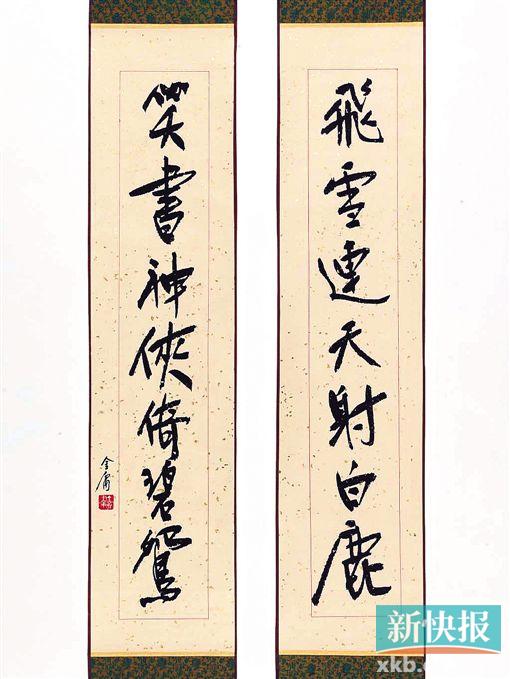 飛雪連天射白鹿
笑書神俠倚碧鴛
金庸
新快报
xkb.com